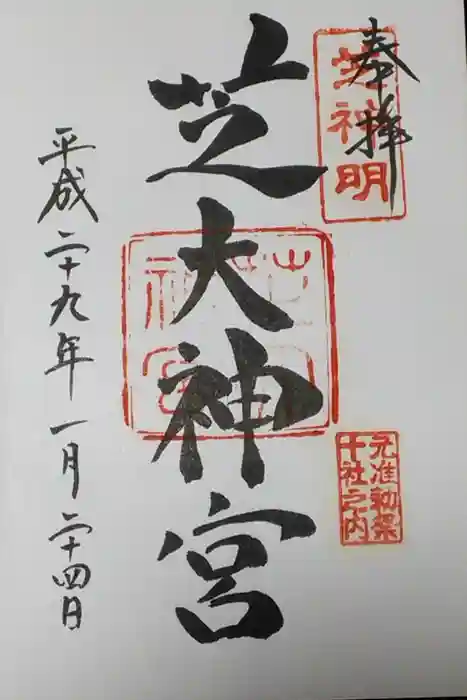 奉拝
芝神明
元准勅祭
十社之内
芝大神宮
平成二十九年一月二十四日